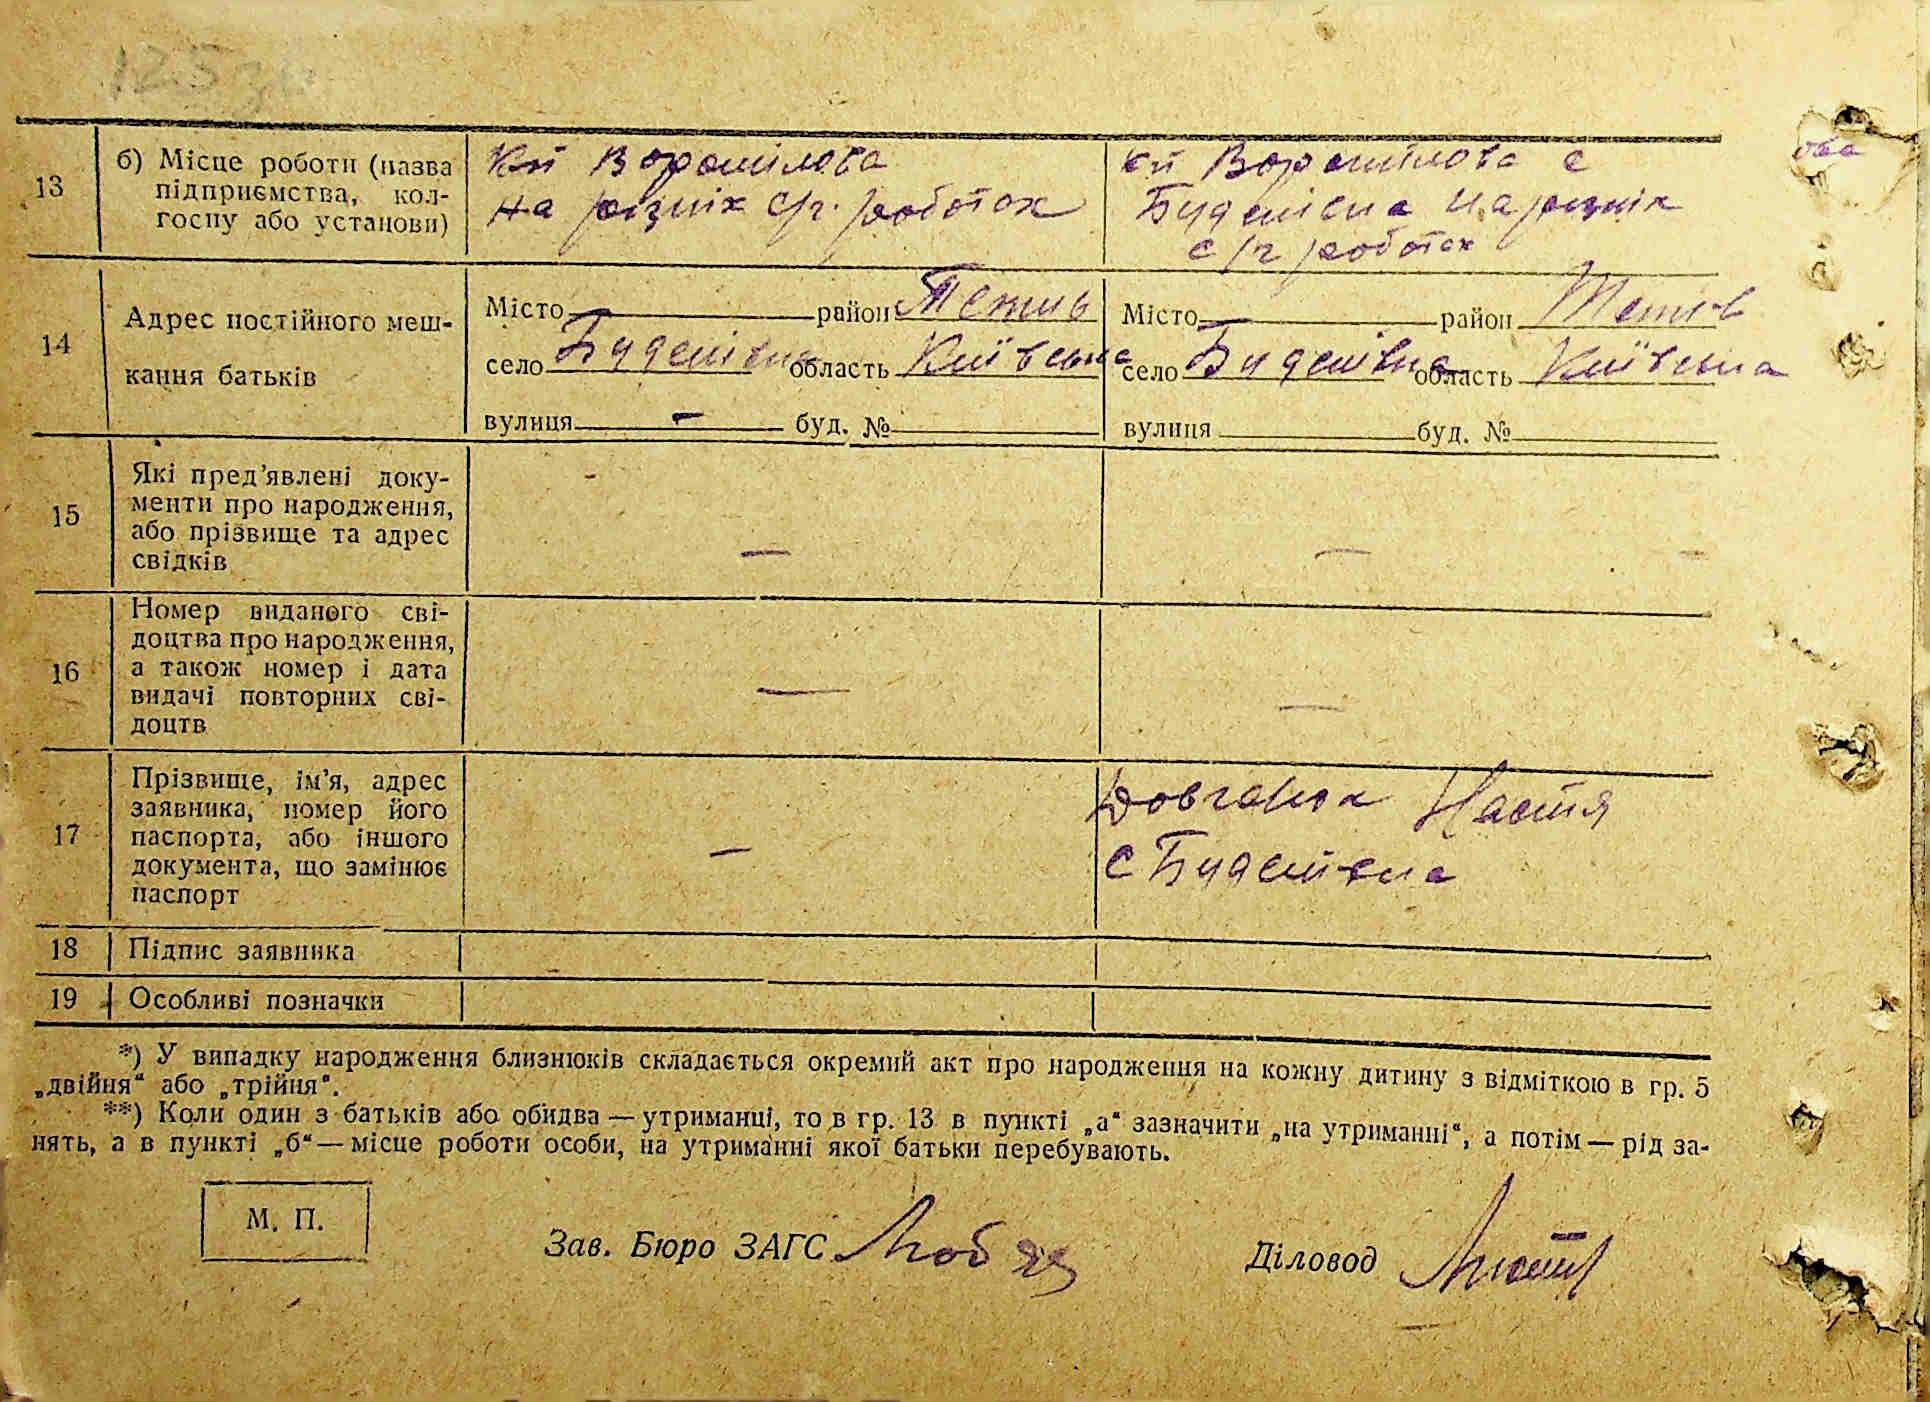 125 зв
13 б) Місце роботи (назва підприємства, колгоспу або установи)
к-п Ворошілова
на різніх с/г. роботах
к-п Ворошілова с
Буденівка на різніх
с/г роботах
14 Адрес постійного мешкання батьків
Місто район Тетиїв
село Буденівка область Київська
вулиця - буд. №
Місто район Тетиїв
село Буденівка область Київська
вулиця буд. №
15 Які пред'явлені документи про народження, або прізвище та адрес свідків
— —
16 Номер виданого свідоцтва про народження, а також номер і дата видачі повторних свідоцтв
— —
17 Прізвище, ім'я, адрес заявника, номер його паспорта, або іншого документа, що замінює паспорт
—
Довганюк Настя
с Буденівка
18 Підпис заявника
19 Особливі позначки
*) У випадку народження близнюків складається окремий акт про народження на кожну дитину з відміткою в гр. 5
„двійня“ або „трійня“.
**) Коли один з батьків або обидва — утриманці, то в гр. 13 в пункті „а“ зазначити „на утриманні“, а потім — рід за-
нять, а в пункті „б“ — місце роботи особи, на утриманні якої батьки перебувають.
М. П.
Зав. Бюро ЗАГС
Діловод